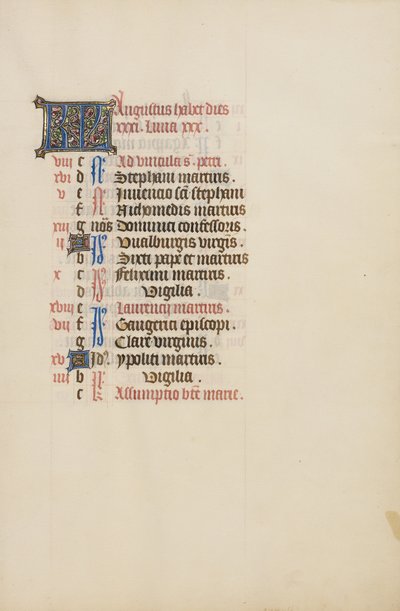 KL Augustus habet dies
xxxi. Luna xxx.
viii c Ad vincula s. petri.
xvi d Stephani martiris.
v e Invencio scī stephani
f Nichomedis martiris
xiii g nōs Dominici confessoris.
ii A Walburgis virgīs.
b Sixti pape et martiris
x c Felixcimi martiris.
d Vigilia.
xviii e Laurencij martiris.
vii f Gaugerici episcopi.
g Clare virginis.
xv A Id. ypoliti martiris.
iiii b Vigilia.
c Assumptio bt̄e marie.